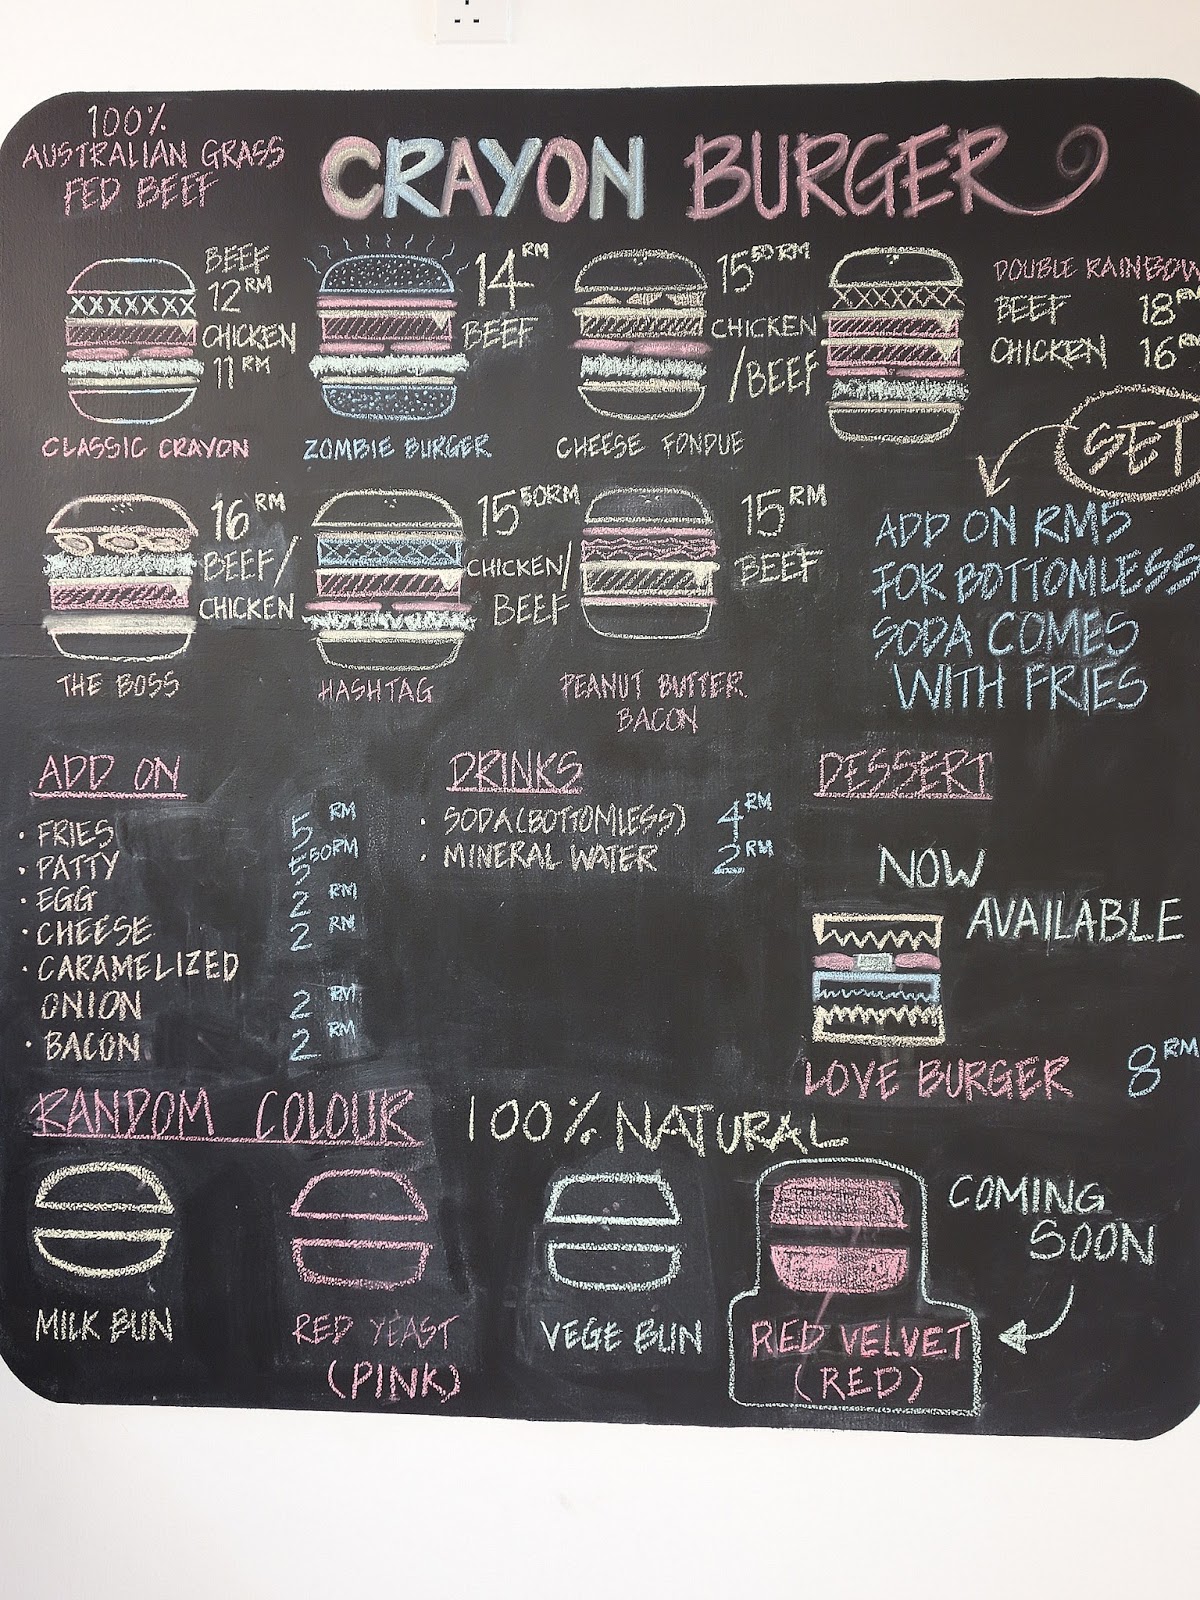 100%
AUSTRALIAN GRASS
FED BEEF
CRAYON BURGER
BEEF
12 RM
CHICKEN
11 RM
CLASSIC CRAYON
14 RM
BEEF
ZOMBIE BURGER
15 50 RM
CHICKEN
/BEEF
CHEESE FONDUE
DOUBLE RAINBOW
BEEF 18 RM
CHICKEN 16 RM
SET
ADD ON RM5
FOR BOTTOMLESS
SODA COMES
WITH FRIES
16 RM
BEEF/
CHICKEN
THE BOSS
15 50RM
CHICKEN/
BEEF
HASHTAG
15 RM
BEEF
PEANUT BUTTER
BACON
ADD ON
· FRIES 5 RM
· PATTY 5 50RM
· EGG 2 RM
· CHEESE 2 RM
· CARAMELIZED
ONION 2 RM
· BACON 2 RM
DRINKS
· SODA(BOTTOMLESS) 4 RM
· MINERAL WATER 2 RM
DESSERT
NOW
AVAILABLE
LOVE BURGER 8 RM
RANDOM COLOUR 100% NATURAL
MILK BUN
RED YEAST
(PINK)
VEGE BUN
RED VELVET
(RED)
COMING
SOON